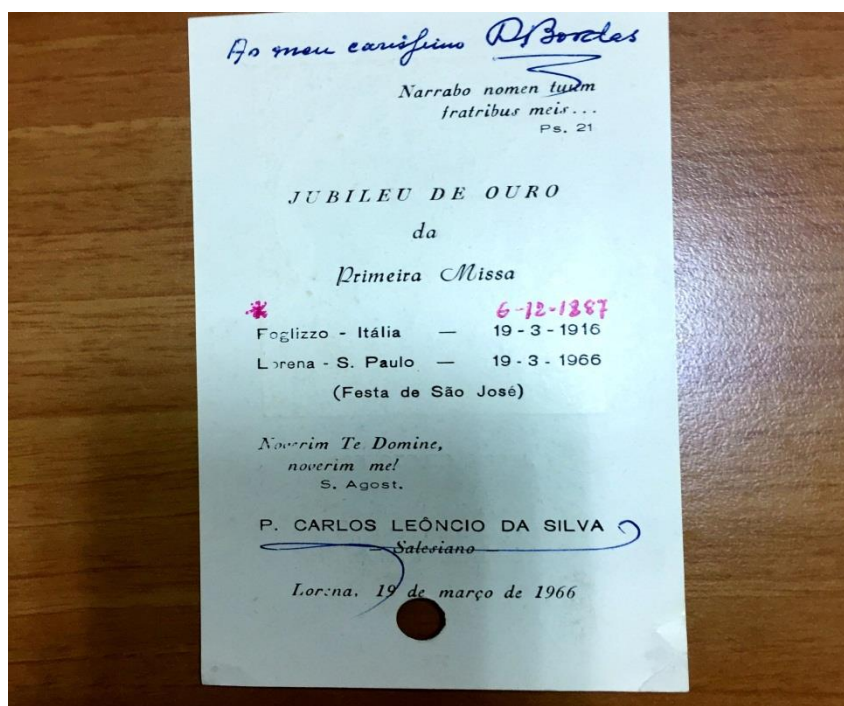 Ao meu caríssimo P. Bordas
Narrabo nomen tuum
fratribus meis...
Ps. 21
JUBILEU DE OURO
da
Primeira Missa
* 6-12-1887
Foglizzo - Itália — 19 - 3 - 1916
Lorena - S. Paulo — 19 - 3 - 1966
(Festa de São José)
Noverim Te Domine,
noverim me!
S. Agost.
P. CARLOS LEÔNCIO DA SILVA
— Salesiano —
Lorena, 19 de março de 1966